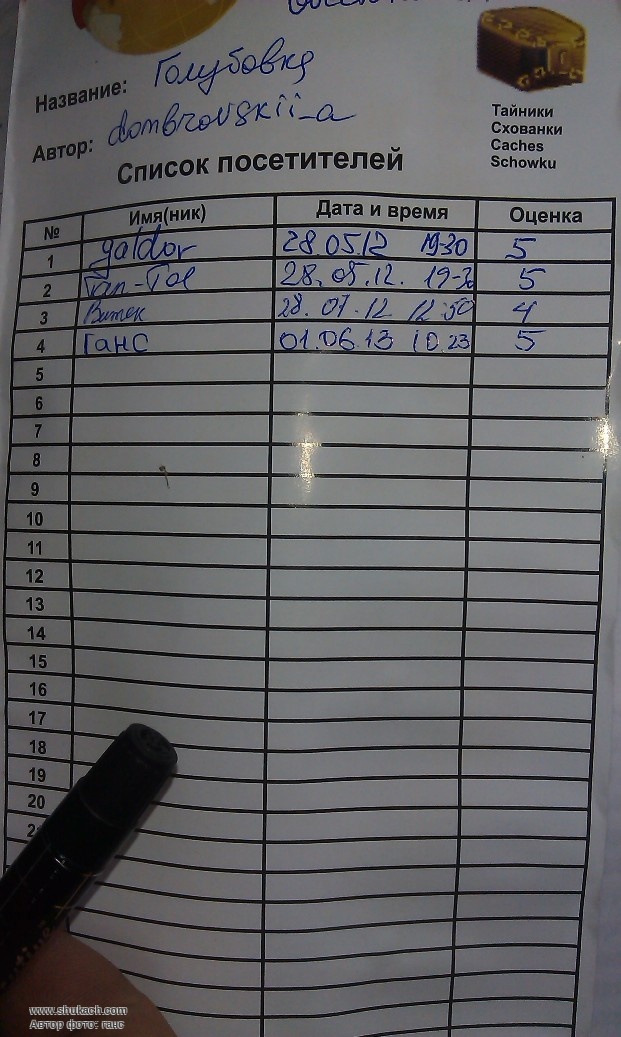 Название: Голубовка
Автор: dombrovskii_a
Тайники
Схованки
Caches
Schowku
Список посетителей
№ Имя(ник) Дата и время Оценка
1 galdor 28.05.12 19-30 5
2 28.05.12. 19-30 5
3 Витек 28.07.12 12:50 4
4 ганс 01.06.13 10.23 5
5
6
7
8
9
10
11
12
13
14
15
16
17
18
19
20
www.shukach.com
Автор фото: ганс